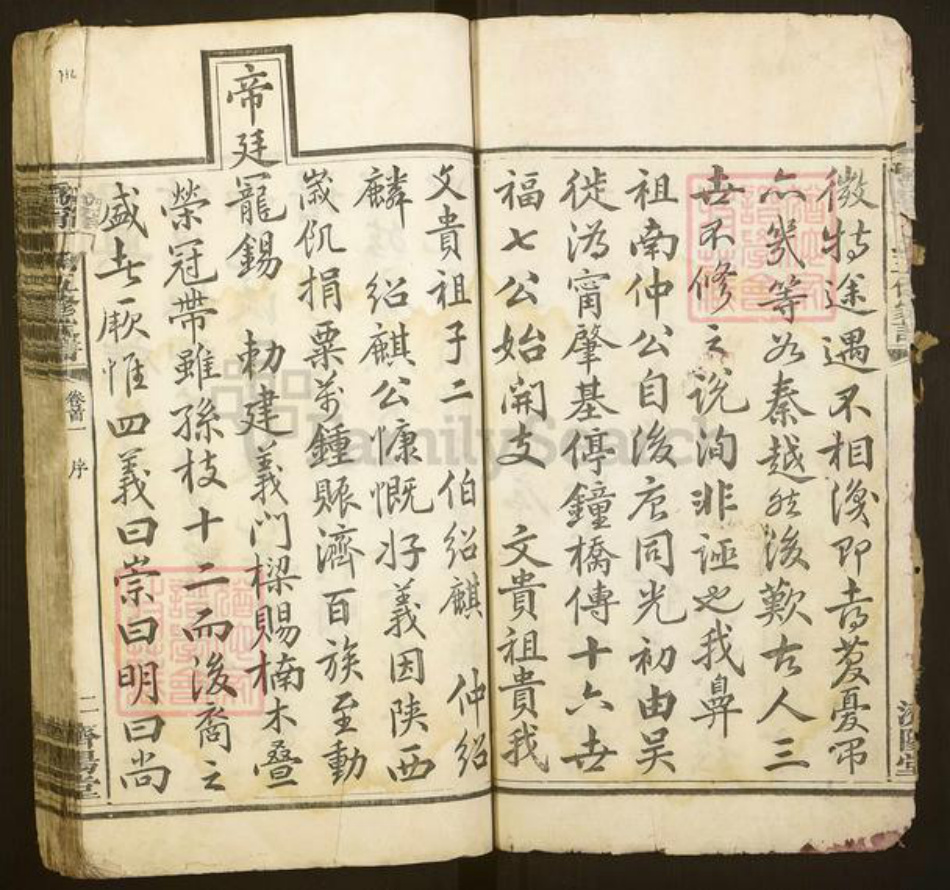 微特途遇不相渙即喜慶憂弔
亦幾等如秦越然後歎古人三
世不修之說洵非誣也我鼻
祖南仲公自後唐同光初由吳
徙溈甯肇基停鐘橋傳十六世
福七公始開支 文貴祖貴我
文貴祖子二 伯紹麒 仲紹
麟 紹麒公慷慨好義因陝西
歲饥捐粟萬鍾賑濟百族至動
帝廷寵錫 勅建義門樑賜楠木疊
榮冠帶雖孫枝十二而後裔之
盛者厥惟四義曰崇曰明曰尚
卷首一
序
二
濟陽堂
濟陽堂
FamilySearch